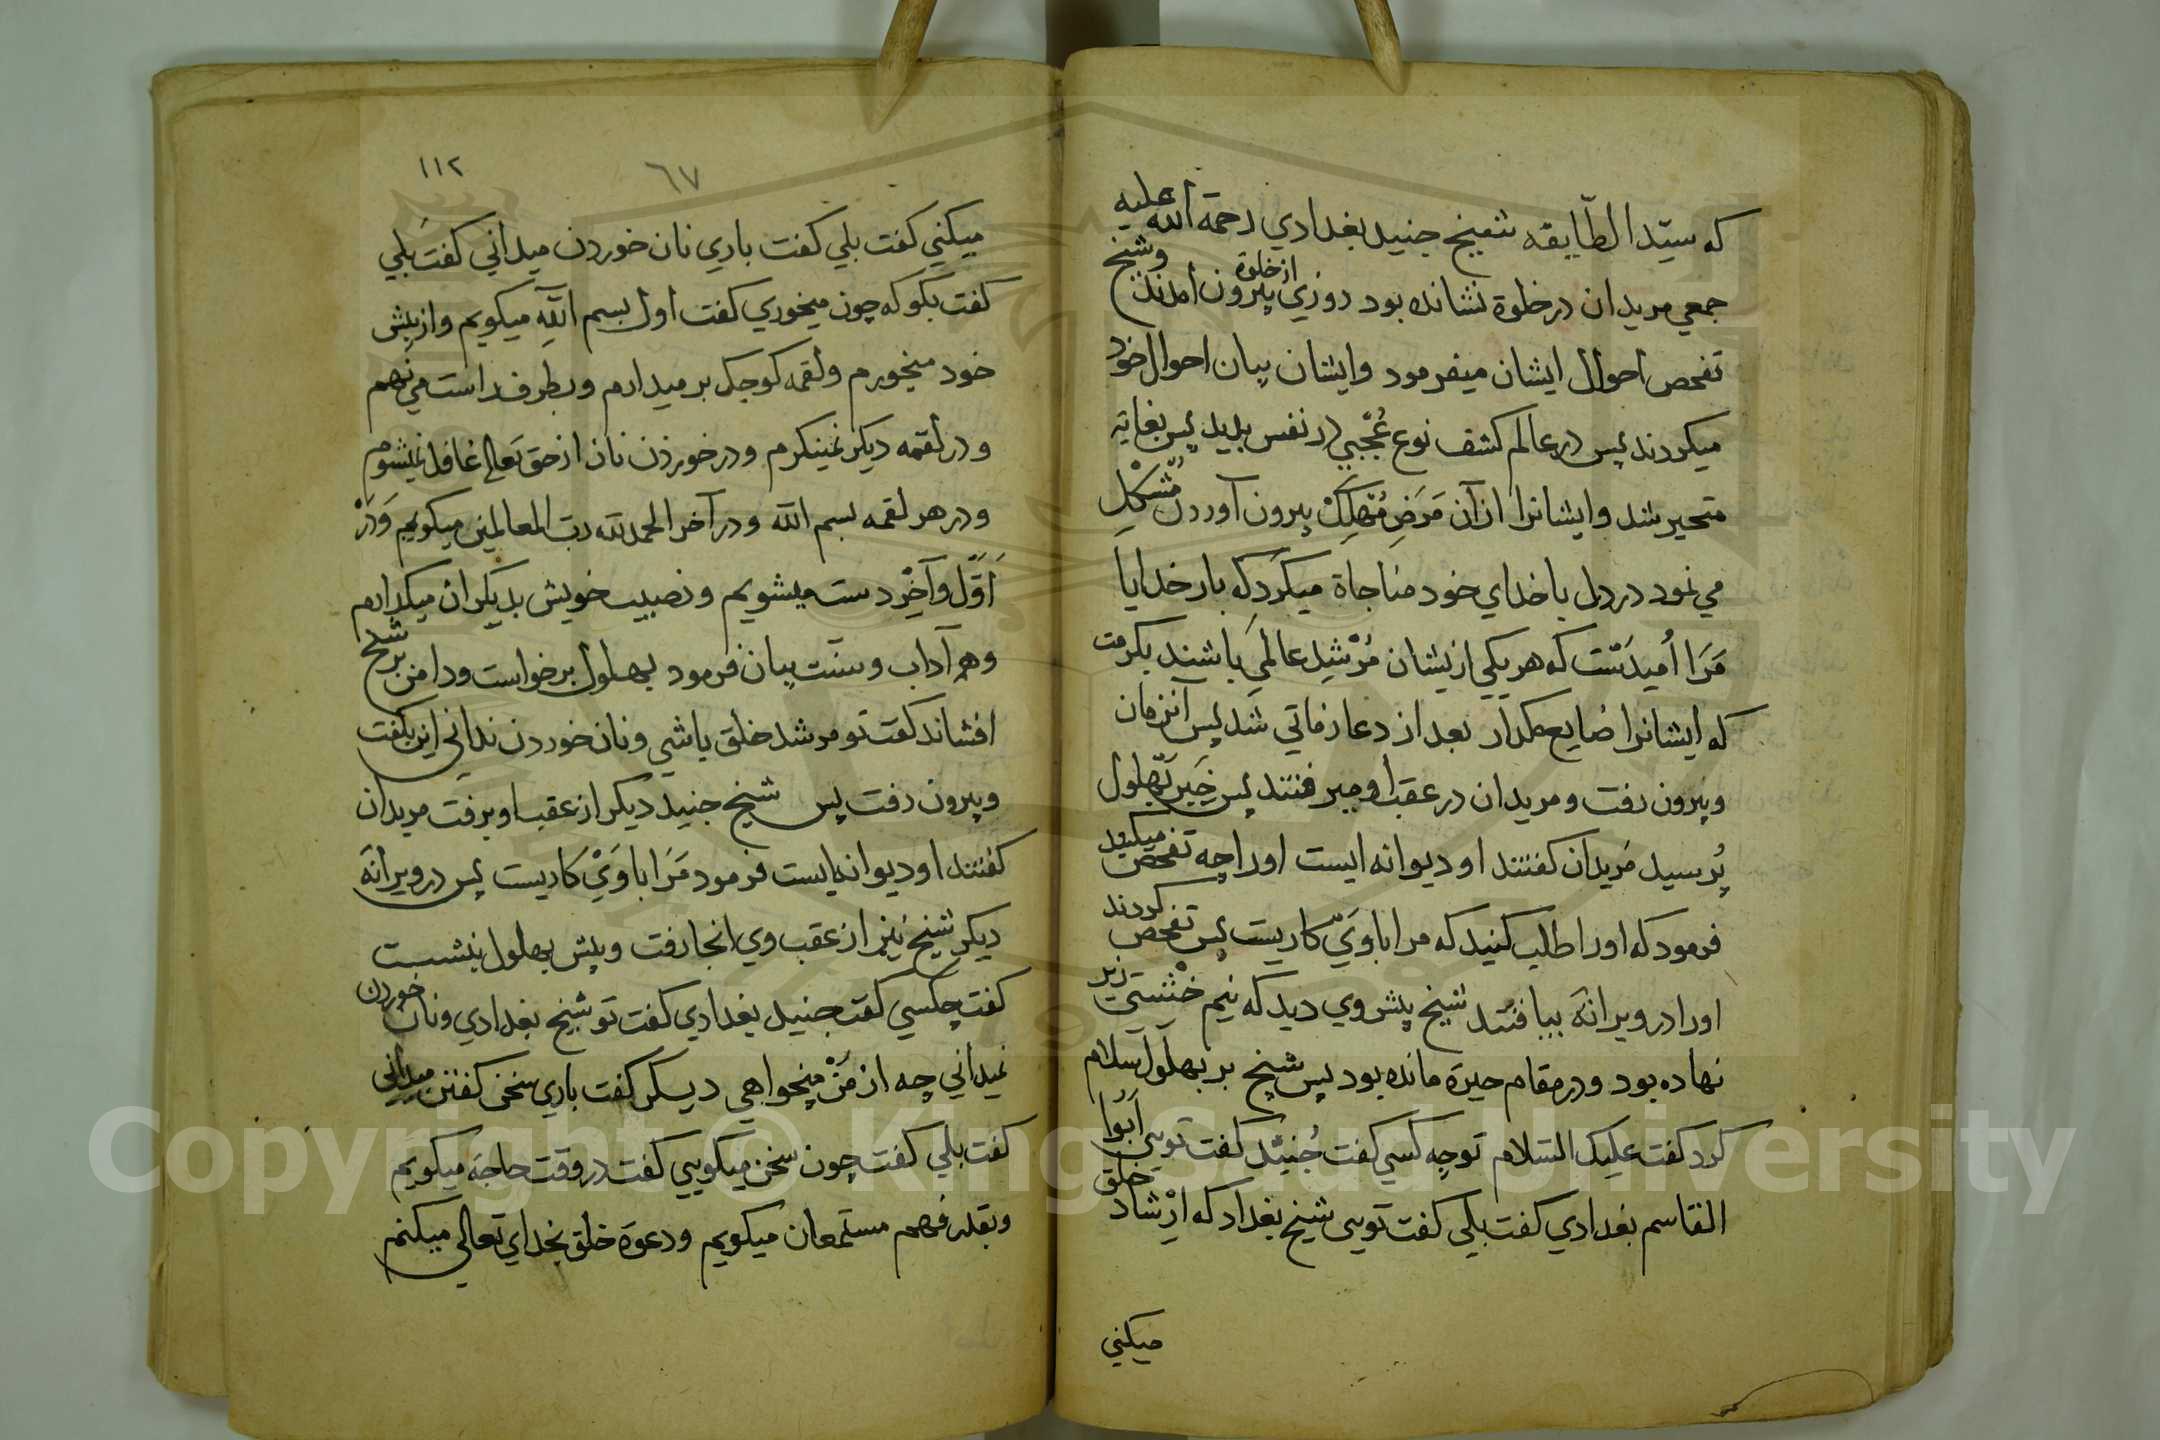 که سیّد الطّایقه شیخ جنید بغدادي رحمة الله علیه
جمعي مریدان در خلوة نشانده بود روزي از خلوة بیرون آمدند وشیخ
تفحص احوال ایشان میفرمود وایشان بیان احوال خود
میکردند پس در عالم کشف نوع عُجبي در نفس بدید پس بغایة
متحیر شد وایشانرا از آن مَرَضِ مُهلِکْ بیرون آوردن مُشکِل
مي نمود در دل با خداي خود مناجاة میکرد که بار خدایا
مَرَا اُمیدَست که هر یکي ازیشان مُرْشِد عالمي باشند بکرمت
که ایشانرا ضایع مکدار بعد از دعا زماني شد پس آنزمان
وبیرون رفت و مریدان در عقب او میرفتند پس خبر بهلول
پُرسید مریدان کفتند او دیوانه ایست اورا چه تفحص میکنید
فرمود که اورا طلب کنید که مرا باوَيْ کاریست پس تفحص کردند
اورا در ویرانهٔ بیافتند شیخ پیش وي دید که نیم خشتي زیر
نهاده بود ودر مقام حیرة مانده بود پس شیخ بر بهلول سلام
کرد کفت علیک السّلام تو چه کسي کفت جُنیْد کفت تویي اَبُوا
القاسم بغدادي کفت بلي کفت تویي شیخ بغداد که اِرْشاد خلق
میکني
٦٧
١١٢
میکني کفت بلي کفت باري نان خوردن میداني کفت بلي
کفت بکو که چون میخوري کفت اول بسم اللهِ میکویم واز پیش
خود میخورم ولقمه کوجک بر میدارم وبطرف راست مي نهم
ودر لقمه دیکر نمینکرم ودر خوردن نان از حق تعالی غافل نمیشوم
ودر هر لقمه بسم الله ودر آخر الحمد لله رب العالمین میکویم وَدَرْ
اَوَّل وآخِر دست میشویم ونصیب خویش بدیکران میکذارم
وهم آداب وسنت بیان فرمود بهلول برخواست ودامن بر شیخ
افشاند کفت تو مرشد خلق باشي ونان خوردن نداني این بکفت
وبیرون رفت پس شیخ جنید دیکر از عقب او برفت مریدان
کفتند او دیوانه ایست فرمود مَرَا باوَيْ کاریست پس در ویرانهٔ
دیکر شیخ نیز از عقب وي انجا رفت وپیش بهلول بنشست
کفت چکسي کفت جنید بغدادي کفت تو شیخ بغدادي ونان خوردن
نمیداني چه از مَنْ میخواهي دیکر کفت باري سخن کفتن میداني
کفت بلي کفت چون سخن میکویي کفت در وقت حاجة میکویم
وبقدر فهم مستمعان میکویم ودعوة خلق بخداي تعالي میکنم
Copyright © King Saud University